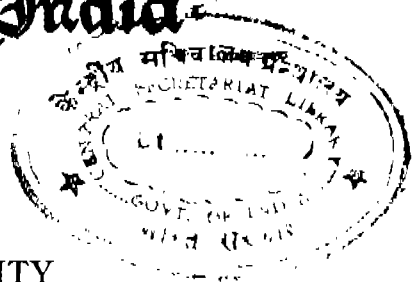 India
केन्द्रीय सचिवालय ग्रन्थालय
CENTRAL SECRETARIAT LIBRARY
GOVT. OF INDIA
भारत सरकार
ITY